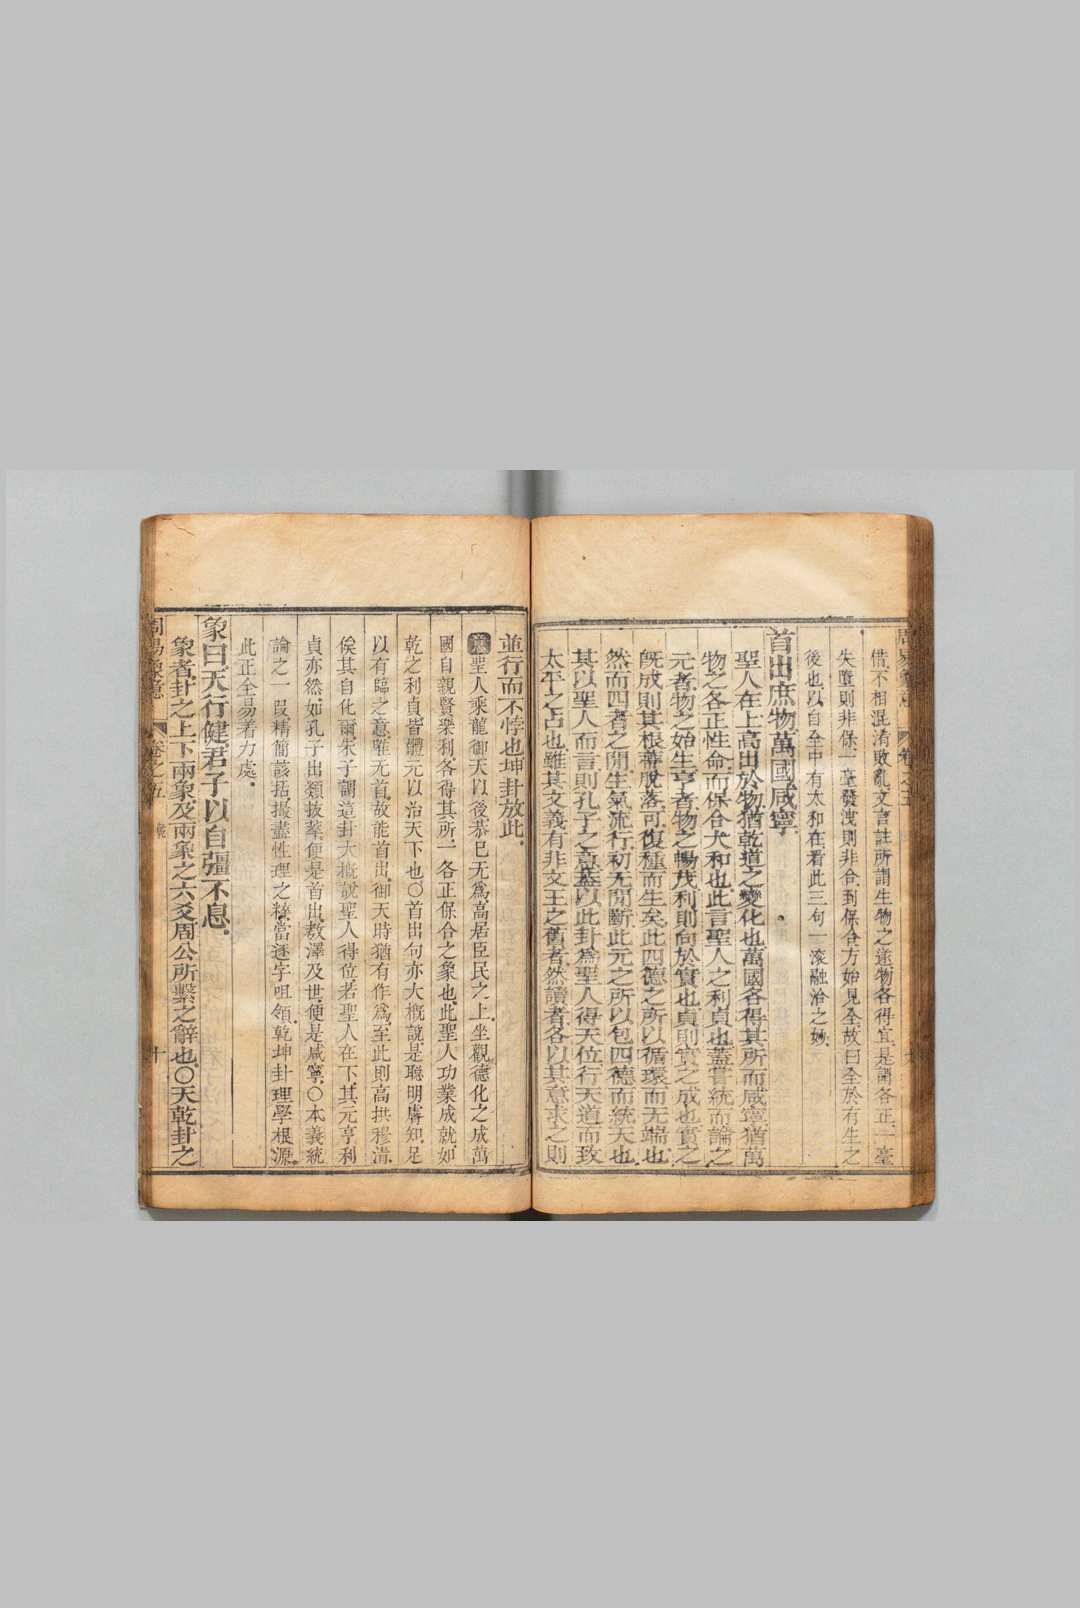 借不相混淆敗亂文言註所謂生物之遂物各得宜是謂各正一毫
失墮則非保一毫發洩則非合到保合方始見全故曰全於有生之
後也以自全中有太和在看此三句一滾融洽之妙
首出庶物萬國咸寧
聖人在上高出於物猶乾道之變化也萬國各得其所而咸寧猶萬
物之各正性命而保合大和也此言聖人之利貞也蓋嘗統而論之
元者物之始生亨者物之暢茂利則向於實也貞則實之成也實之
旣成則其根蒂脫落可復種而生矣此四德之所以循環而无端也
然而四者之間生氣流行初无間斷此元之所以包四德而統天也
其以聖人而言則孔子之意蓋以此卦爲聖人得天位行天道而致
太平之占也雖其文義有非文王之舊者然讀者各以其意求之則
並行而不悖也坤卦放此
意聖人乘龍御天以後恭巳无爲高居臣民之上坐觀德化之成萬
國自親賢樂利各得其所一各正保合之象也此聖人功業成就如
乾之利貞皆體元以治天下也〇首出句亦大槪說是聰明睿知足
以有臨之意唯无首故能首出御天時猶有作爲至此則高拱穆清
俟其自化爾朱子謂這卦大槪說聖人得位若聖人在下其元亨利
貞亦然如孔子出類拔萃便是首出敎澤及世便是咸寧〇本義統
論之一段精簡該括撮盡性理之 當逐字咀領乾坤卦理學根源
此正全易着力處
象曰天行健君子以自彊不息
象者卦之上下兩象及兩象之六爻周公所繫之辭也〇天乾卦之
周易 意 卷之五 十